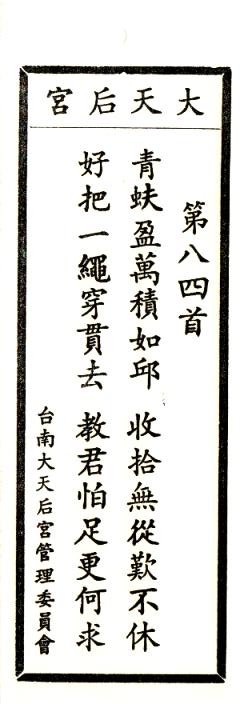 大天后宮
第八四首
青蚨盈萬積如邱 收拾無從歎不休
好把一繩穿貫去 教君怕足更何求
台南大天后宮管理委員會